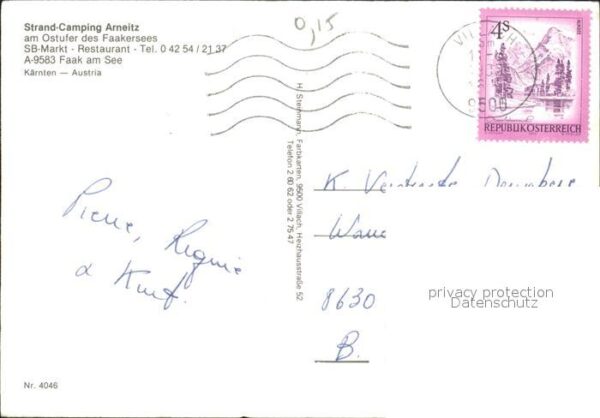 Strand-Camping Arneitz
am Ostufer des Faakersees
SB-Markt - Restaurant - Tel. 0 42 54 / 21 37
A-9583 Faak am See
Kärnten — Austria
0,15
4S
ALMSEE
REPUBLIK ÖSTERREICH
9500
H. Steinmann, Farbkarten, 9500 Villach, Heizhausstraße 52
Telefon 2 60 62 oder 2 75 47
K.
8630
B.
Pierre,
& Kurt.
privacy protection
Datenschutz
Nr. 4046